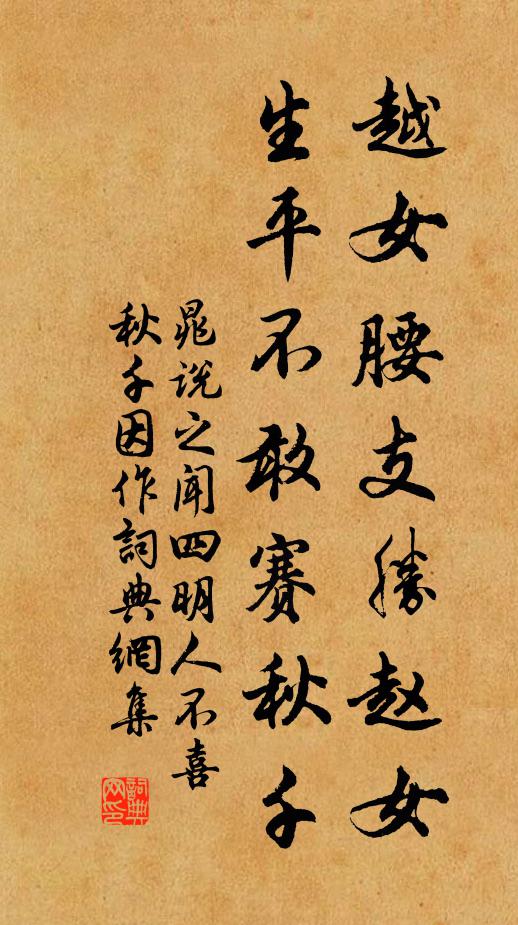 越女腰支勝赵女
生平不敢賽秋千
晁説之闻四明人不喜
秋千因作詞典網集
詞典
网印